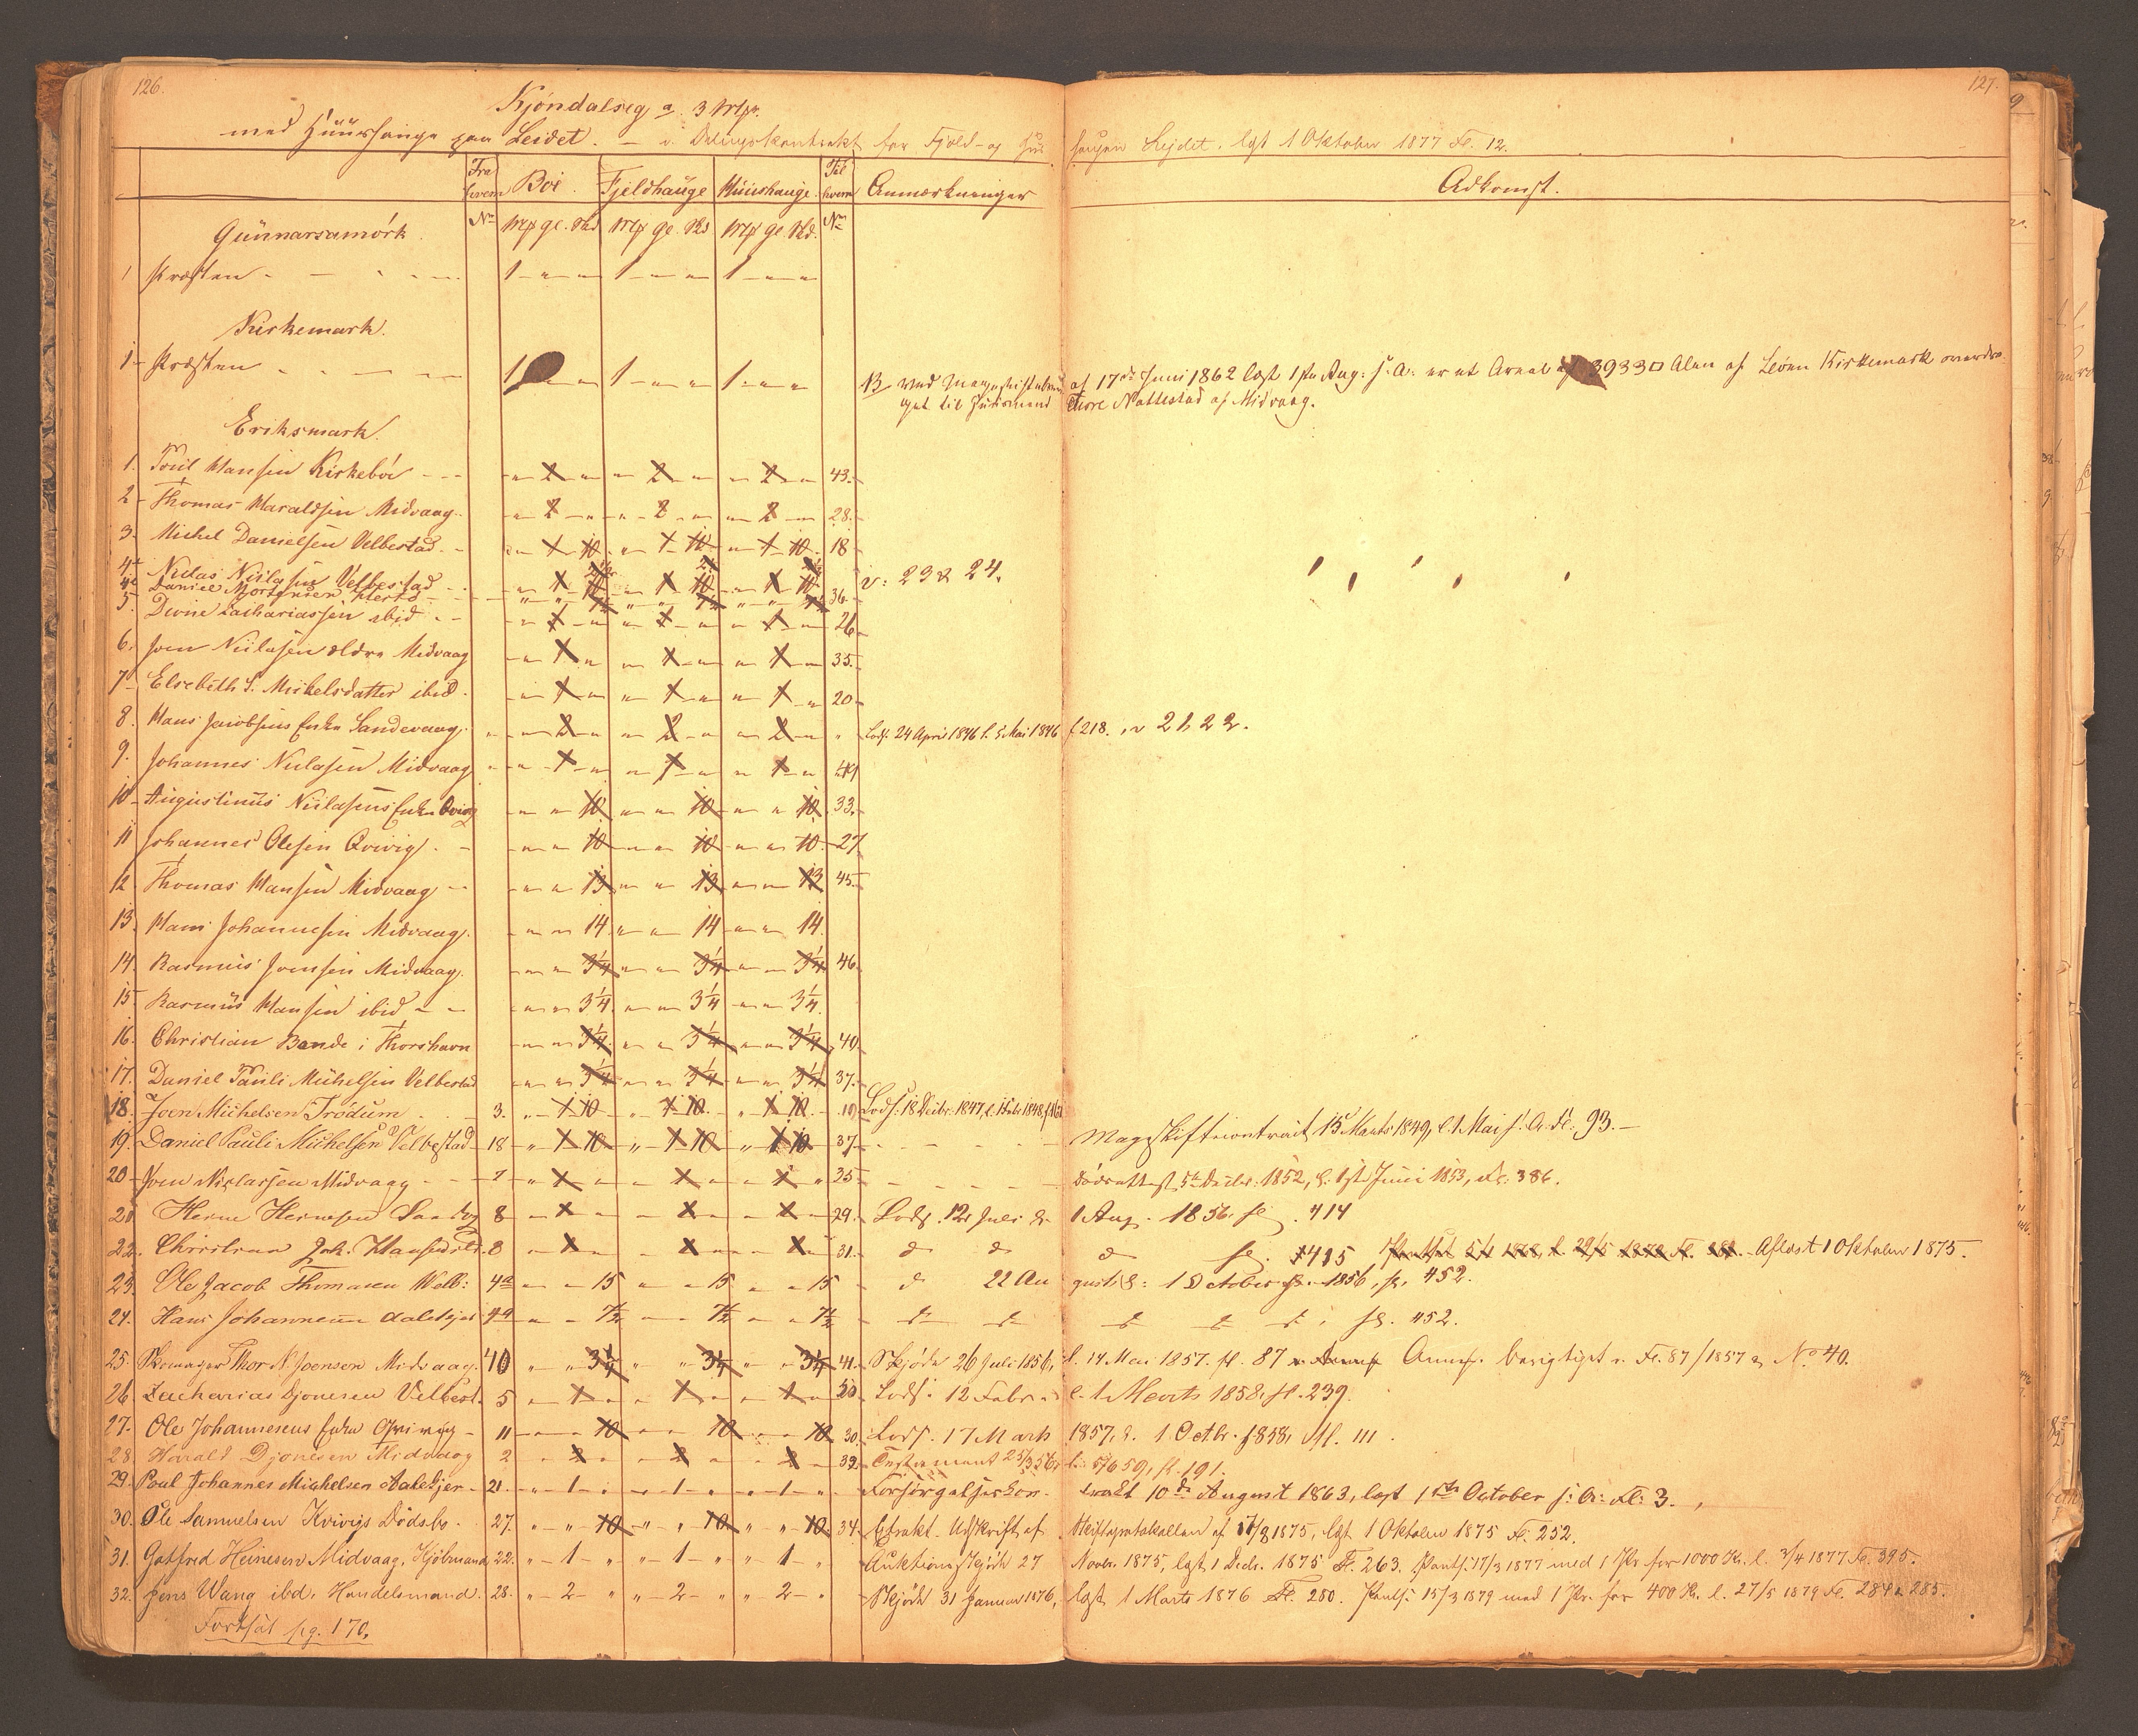 126.
127.
Kjóndalseg a 3 Mrk.
med Húúshauge paa Leidet. — v. Delingskontrakt for Fjeld- og Hus
haugen Lejdet, læst 1 Oktober 1877 Fl. 12.
Fra hvem Boë. Fjeldhaúge Húúshaúge. Til hvem Anmærkninger Adkomst.
Gúnnarsamórk No Mk gl. Skd Mk gl. Skd Mk gl. Skd. No
1 Præsten 1 — „ — „ 1 — „ — „ 1 — „ — „
Kirkemark.
1 Præsten 1 — „ — „ 1 — „ — „ 1 — „ — „ NB ved Mageskiftebrev af 17de Juni 1862 læst 1ste Aug: s: A: er et Areal af 3933 □ Alen af Leónu Kirkemark overdra-
get til Huusmand Thore Nattestad af Midvaag.
Eriksmark.
1. Poúl Hansen Kirkebóe — — „ — 2 — „ „ — 2 — „ „ — 2 — „ 43.
2 Thomas Haraldsen Midvaag „ — 2 — „ „ — 2 — „ „ — 2 — „ 28.
3. Michel Danielsen Velbestad „ — 1 — 10 „ — 1 — 10 „ — 1 — 10 18
4a Niclas Niclasen Velbestad „ 1 „ 1 „ 1 v: 23 & 24.
4b Daniel Mortensen 36.
5. Dione Zachariassen ibid „ — 1 — „ „ — 1 — „ „ — 1 — „ 26
6. Joen Niclasen ældre Midvaag „ — 1 — „ „ — 1 — „ „ — 1 — „ 35.
7 Elsebeth S. Mickelsdatter ibid. „ — 1 — „ „ — 1 — „ „ — 1 — „ 20
8. Hans Jacobsens Enke Sandevaag „ — 2 — „ „ — 2 — „ „ — 2 — „ „ Lods. 24 April 1846 l. 5 Mai 1846 f 218. v 21, 22.
9. Johannes Niclasen Midvaag „ — 1 — „ „ — 1 — „ „ — 1 — „ 49
10 Augustinús Niclasens Enke Qvivig „ — „ 10 „ — „ 10 „ — „ 10 33.
11 Johannes Olesen Qvivig. „ — „ 10 „ — „ 10 „ — „ 10 27.
12 Thomas Hansen Midvaag „ — „ 13 „ — „ 13 „ — „ 13 45.
13. Hans Johannesen Midvaag. „ — „ 14 „ — „ 14 „ — „ 14.
14. Rasmús Joensen Midvaag. „ — „ 3¼ „ — „ 3¼ „ — „ 3¼ 46.
15 Rasmús Hansen ibid „ — „ 3¼ „ — „ 3¼ „ — „ 3¼
16. Christian Bende i Thorshavn „ — „ 3¼ „ — „ 3¼ „ — „ 3¼ 40.
17. Daniel Paúli Michelsen Velbestad „ — „ 3¼ „ — „ 3¼ „ — „ 3¼ 37.
18. Joen Michelsen Tródum 3. „ 1 10 „ 1 10 „ 1 10 19 Lods: 18 Decbr: 1847, l. 1 Febr 1848,
19. Daniel Pauli Michelsen Velbestad 18 „ 1 10 „ 1 10 „ 1 10 37 Mageskiftecontract 15 Marts 1849, l. 1 Mai s: A: Fl: 93. —
20 Joen Niclasen Midvaag 7 „ 1 „ „ 1 „ „ 1 „ 35 Dódsattest 5te Decbr: 1852, l. 1ste Juni 1853, Fl. 386.
21 Heine Heinesen Sandvg 8 „ 1 „ „ 1 „ „ 1 „ 29. Lods. 12 Juli l. 1 Aug. 1856. fl. 414
22. Christian Joh. 8 „ 1 „ „ 1 „ „ 1 „ 31. do do do fl. 415 Aflæst 1 Oktober 1875.
23. Ole Jacob Thomasen Velb: 4a „ „ 15 „ „ 15 „ „ 15 do 22 Au gust: l: 1 October 1856, fl. 452.
24. Hans Johannesen Aalekjer 4a „ „ 7½ „ „ 7½ „ „ 7½ do do do do do fl. 452.
25. Skomager Thor N. Joensen Midvaag. 10 „ „ 3¼ „ „ 3¼ „ „ 3¼ 41. Skjóde 26 Juli 1856, l. 14 Mai 1857. fl. 87 Anmk. berigtiget v. Fl. 87/1857 & No 40.
26. Zacharias Djonesen Velbest. 5 „ 1 „ „ 1 „ „ 1 „ 50 Lods: 12 Febr. l. 1 Marts 1858, fl. 239.
27. Ole Johannesens Enke Qvivig 11 „ „ 10 „ „ 10 „ „ 10 30. Lods. 17 Marts 1857, l. 1 Octbr. 1858, fl. 111.
28 Harald Djonesen Midvaag 2 „ 2 „ „ 2 „ „ 2 „ 32. Testament 25/3 56, l. 5/6 59, fl. 191.
29. Poul Johannes Michelsen Aalekjer 21. „ 1 „ „ 1 „ „ 1 „ Forsórgelseskon- tract 10de August 1863, læst 1ste October s: A: Fl: 3.
30. Ole Samuelsen Kvivigs Dódsbo. 27. „ „ 10 „ „ 10 „ „ 10 34. Extrakt-Udskrift af Skifteprotokollen af 17/8 1875, læst 1 Oktober 1875 Fl. 252.
31. Gotfred Heinesen Midvaag, Kjóbmand 22. „ 1 „ „ 1 „ „ 1 „ Auktionsskjóde 27 Novbr. 1875, læst 1 Decbr. 1875 Fl. 263. Pants. 17/3 1877 med 1 Pr. for 1000 Kr. l. 3/4 1877 Fl. 395.
32. Jens Wang ibd, Handelsmand. 28. „ 2 „ „ 2 „ „ 2 „ Skjóde 31 Januar 1876, læst 1 Marts 1876 Fl. 280. Pants. 15/3 1879 med 1 Pr. for 400 Kr. l. 27/5 1879 Fl. 284 & 285.
Fortsat pg. 170.